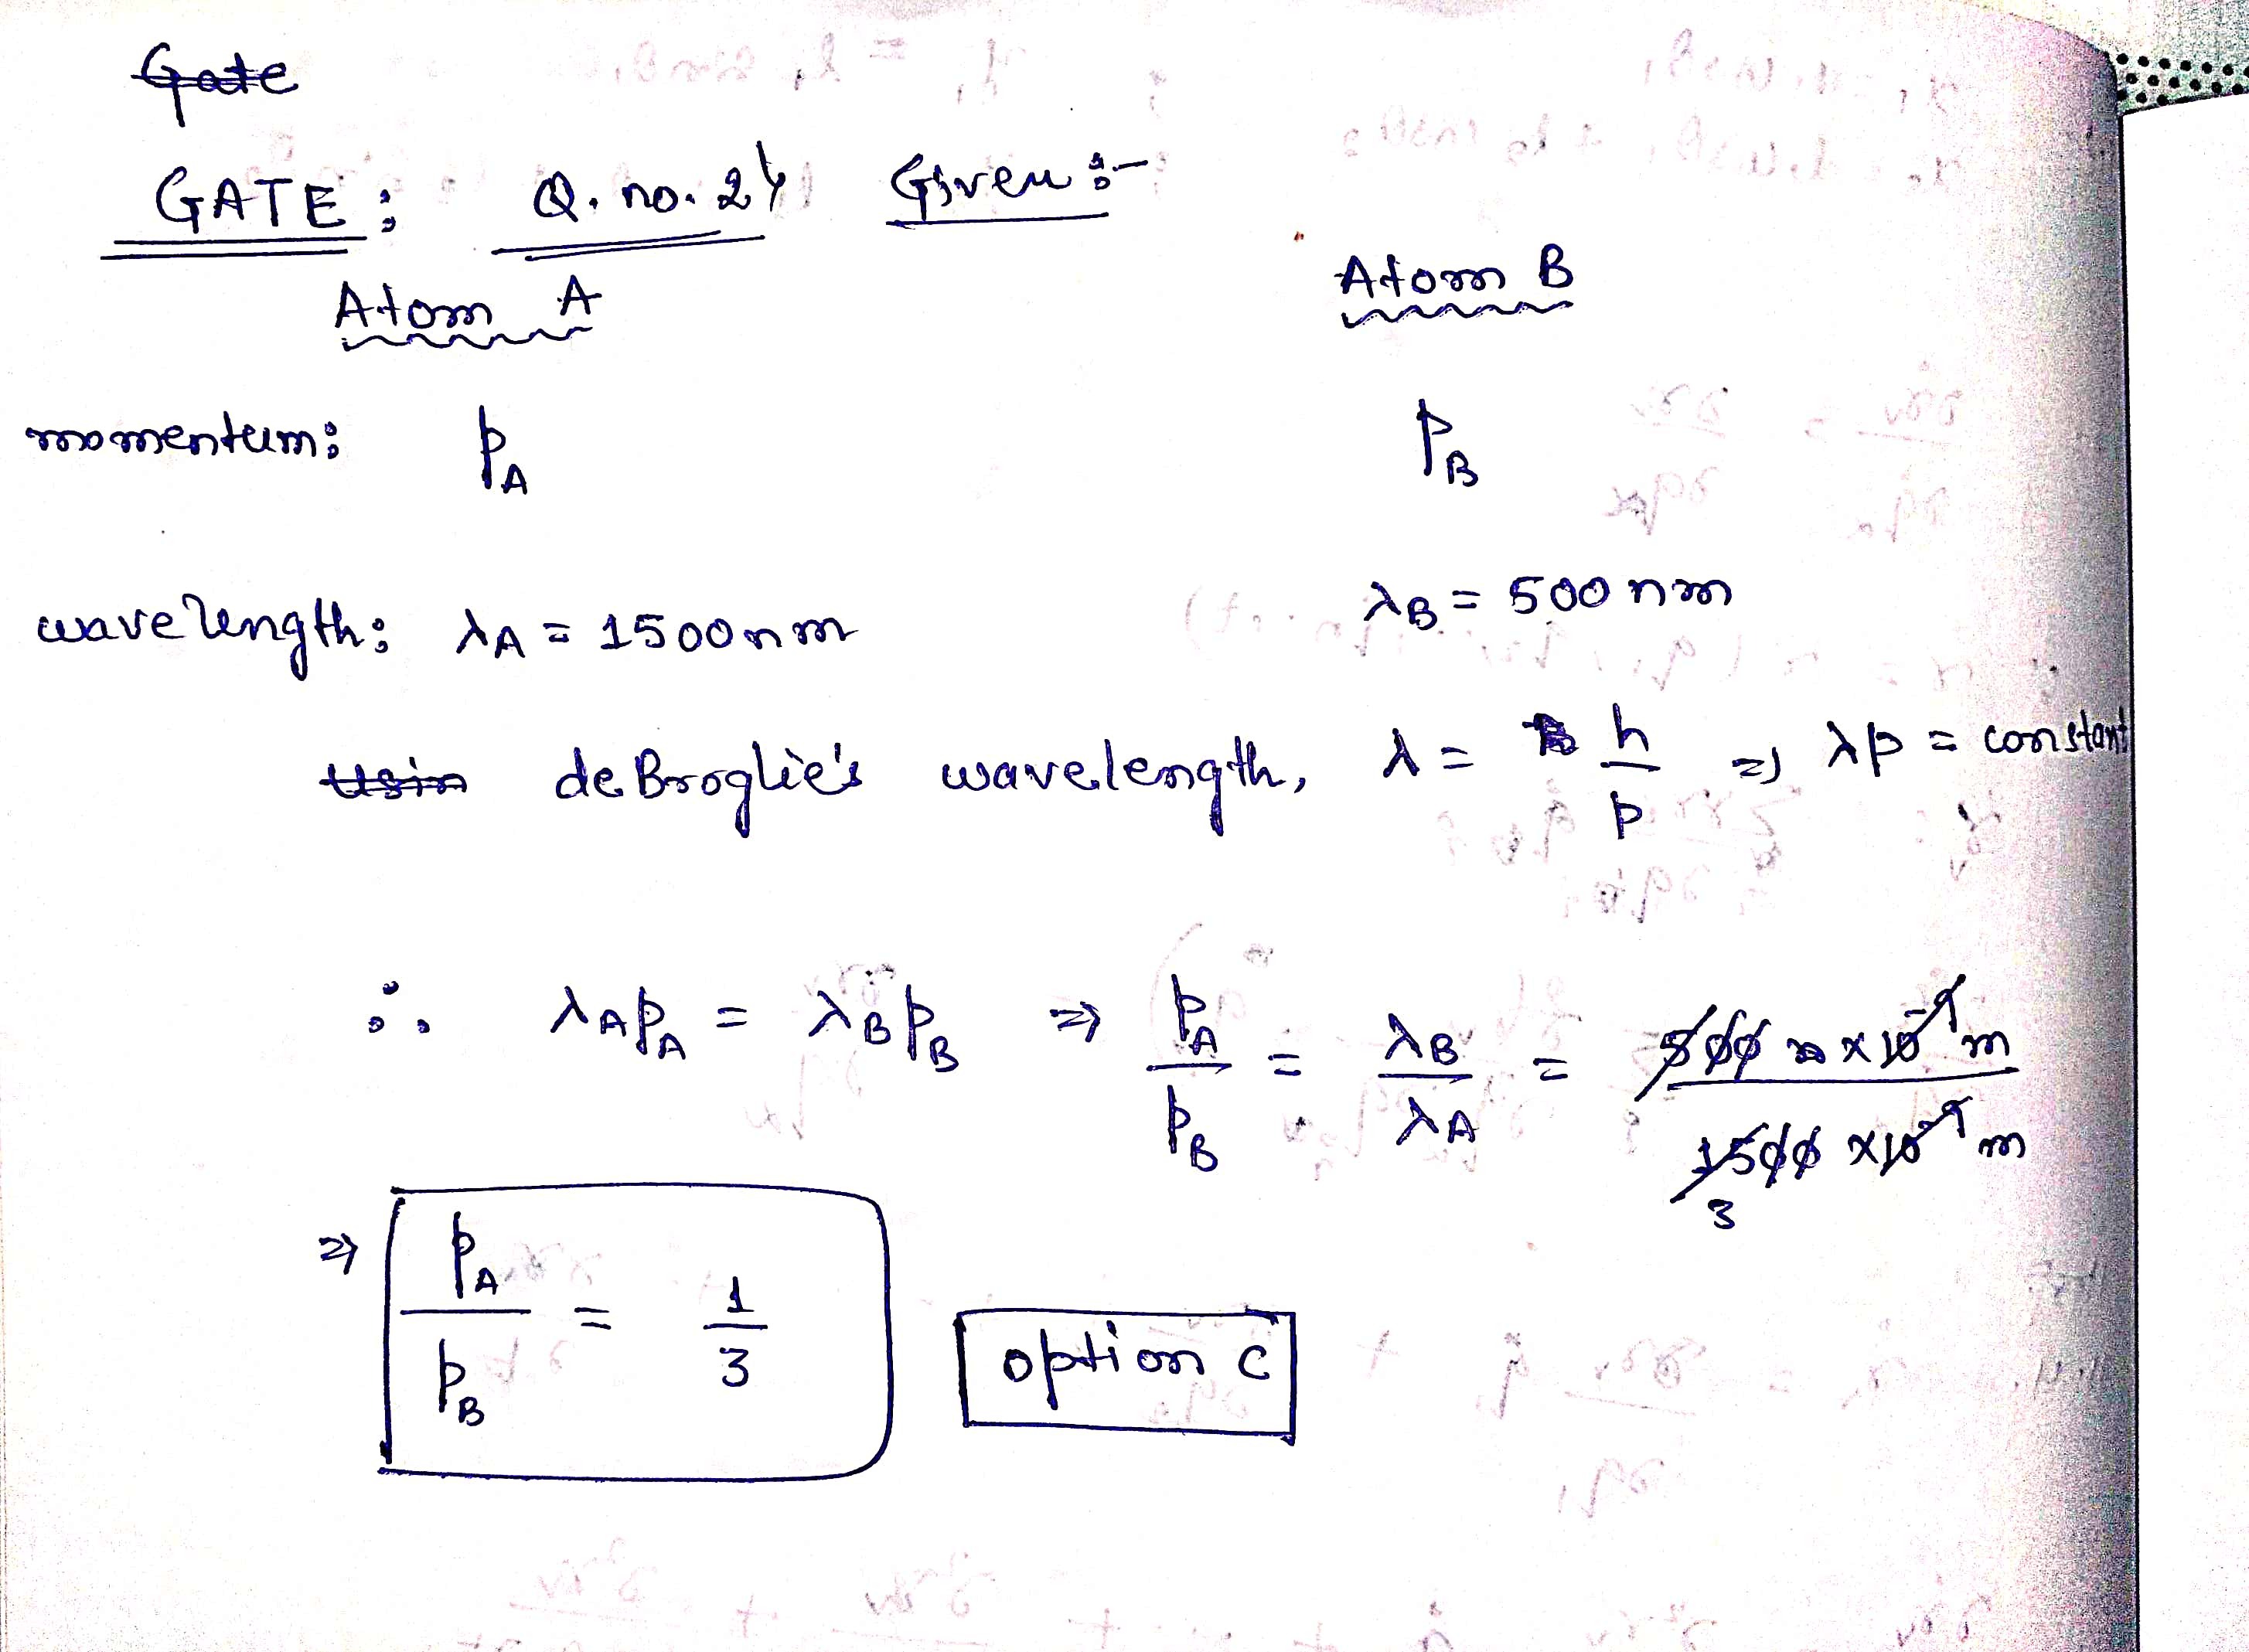 Gate
GATE: Q. no. 24 Given :-
Atom A Atom B
momentum: pA pB
wavelength: λA = 1500nm λB = 500 nm
Usin deBroglie's wavelength, λ = h/p => λp = constant
∴ λA pA = λB pB => pA/pB = λB/λA = 500 x 10^-9 m / 1500 x 10^-9 m
3
=> pA/pB = 1/3 option C